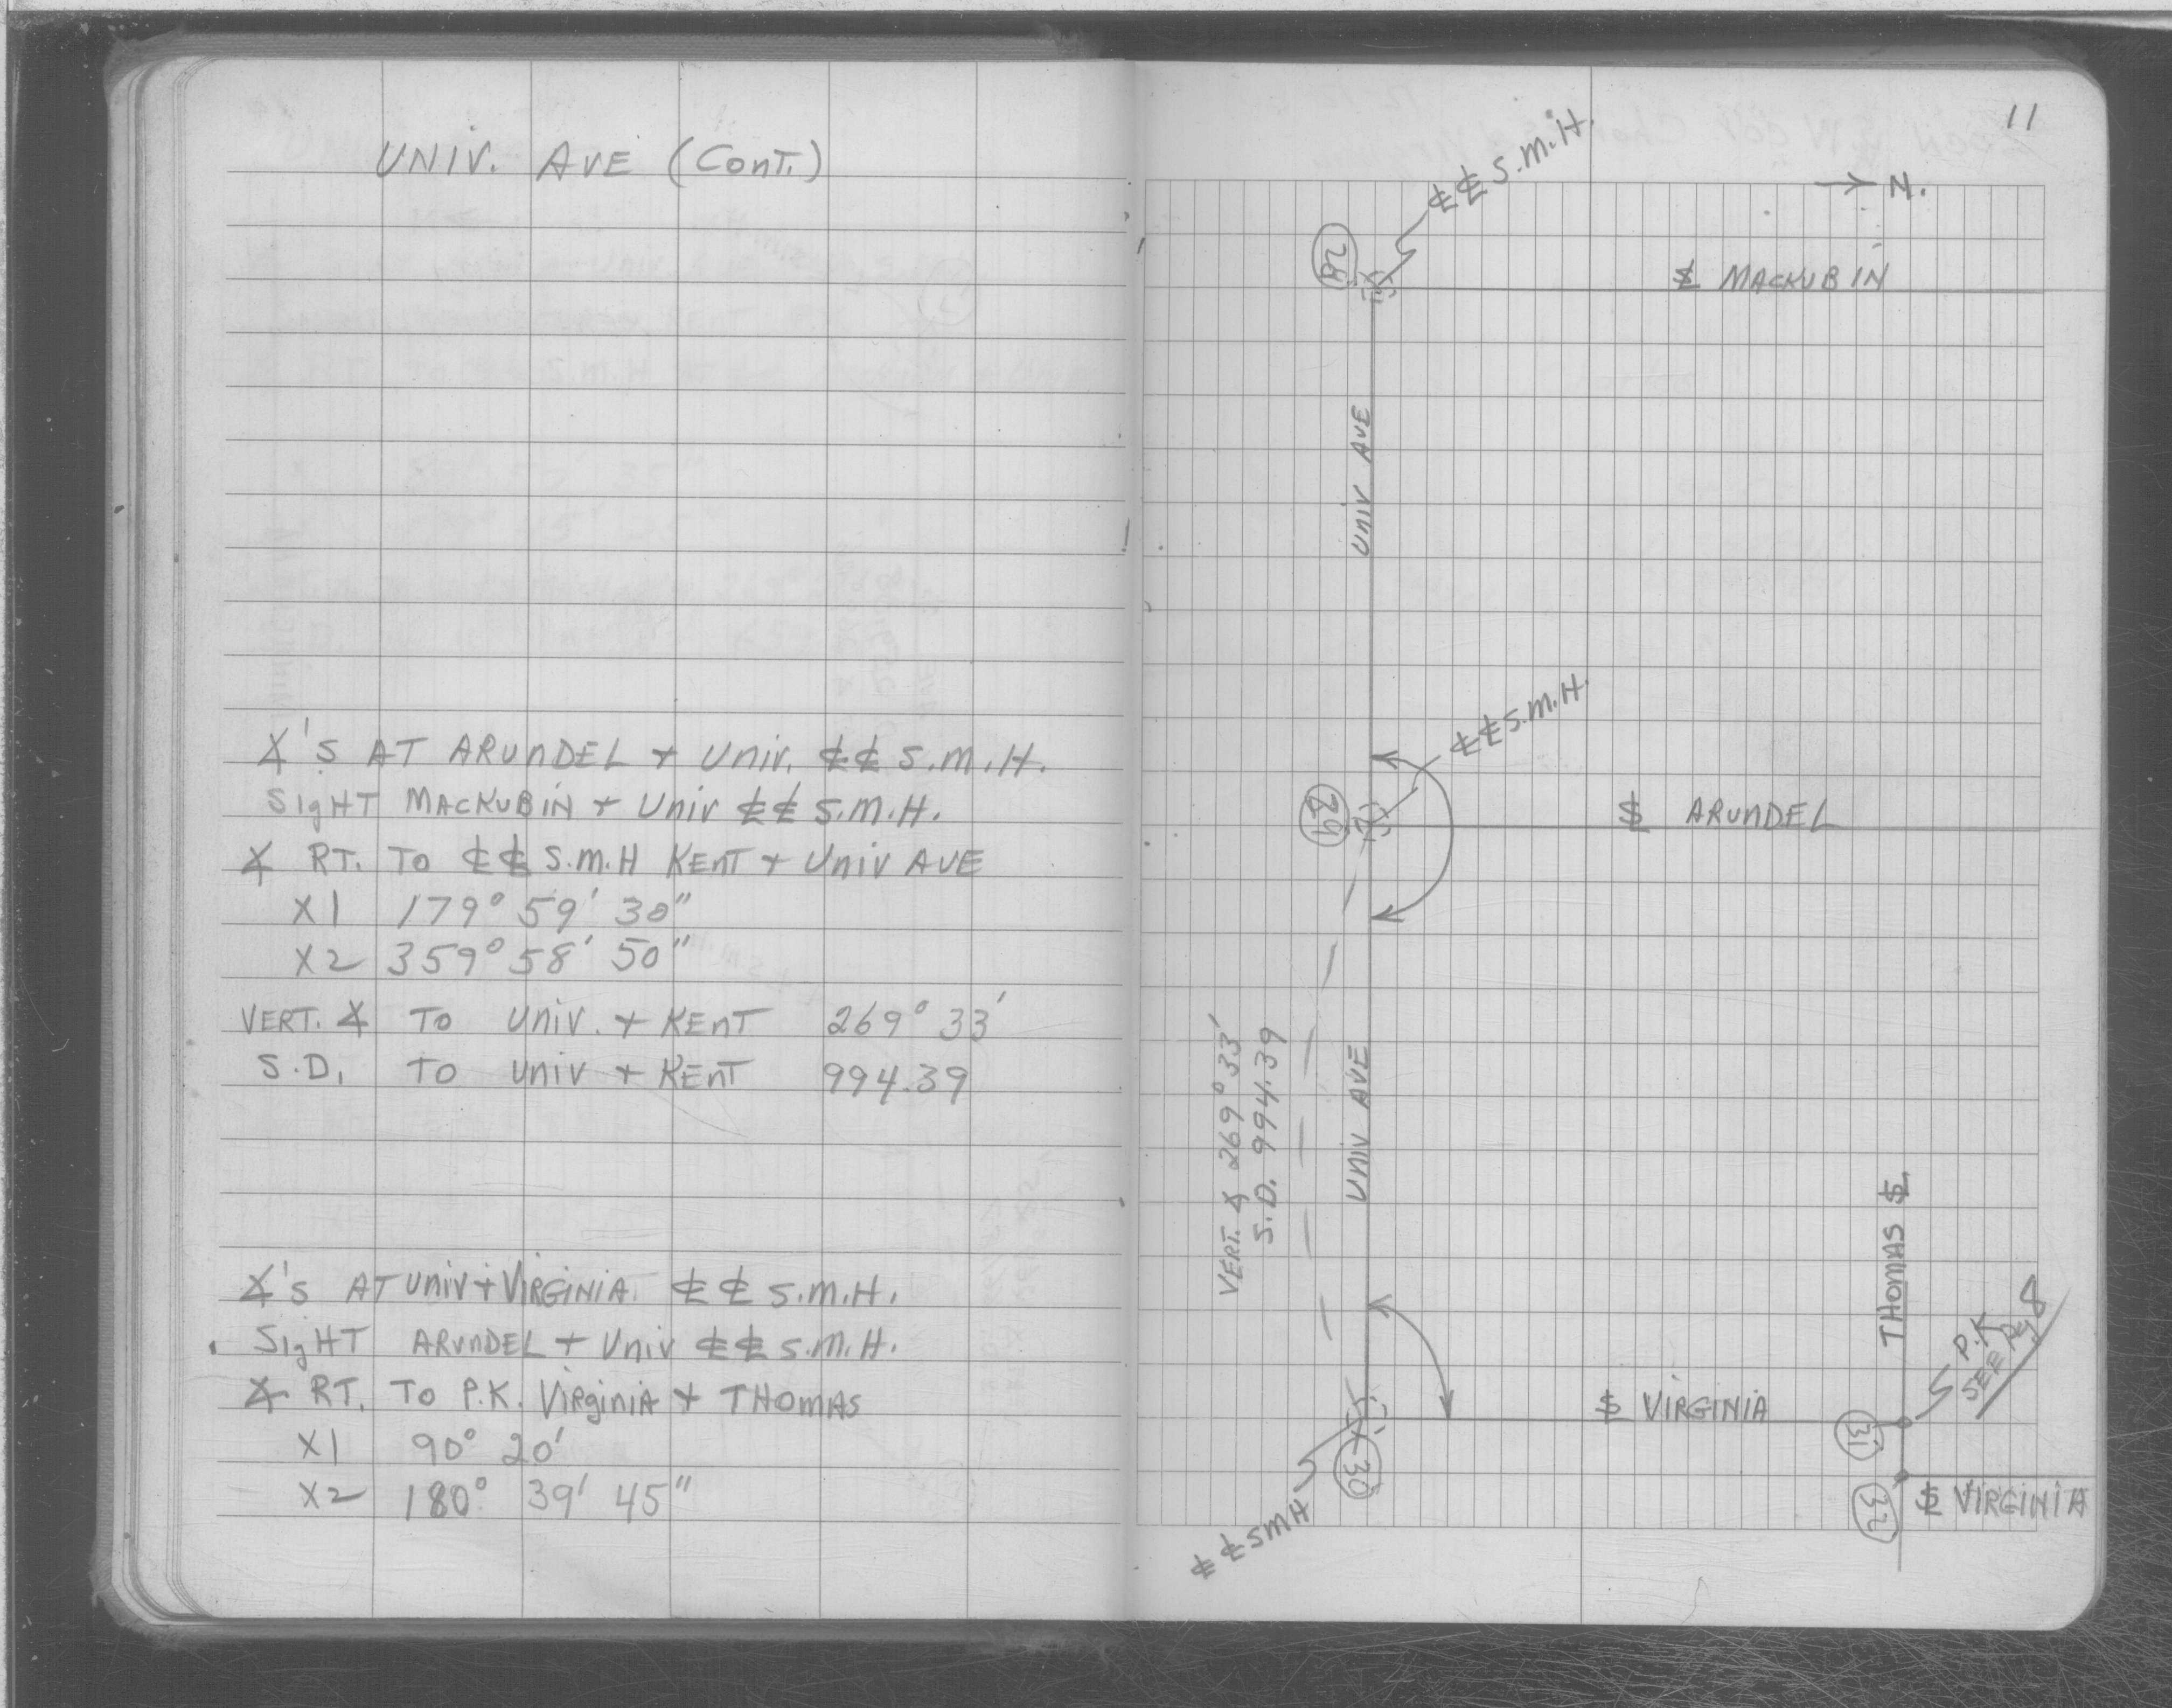 UNIV. AVE (CONT.)
∡'S AT ARUNDEL + UNIV. ℄℄ S.M.H.
SIGHT MACKUBIN + UNIV ℄℄ S.M.H.
∡ RT. TO ℄℄ S.M.H KENT + UNIV AVE
X1 179° 59' 30"
X2 359° 58' 50"
VERT. ∡ TO UNIV. + KENT 269° 33'
S.D. TO UNIV + KENT 994.39
∡'S AT UNIV + VIRGINIA ℄℄ S.M.H.
SIGHT ARUNDEL + UNIV ℄℄ S.M.H.
∡ RT. TO P.K. VIRGINIA + THOMAS
X1 90° 20'
X2 180° 39' 45"
11
N.
℄℄ S.M.H.
28
℄ MACKUBIN
UNIV AVE
℄℄ S.M.H.
29
℄ ARUNDEL
VERT. ∡ 269° 33'
S.D. 994.39
UNIV AVE
THOMAS ℄
P.K
SEE Pg 8
℄ VIRGINIA
31
30
℄℄ SMH
32
℄ VIRGINIA